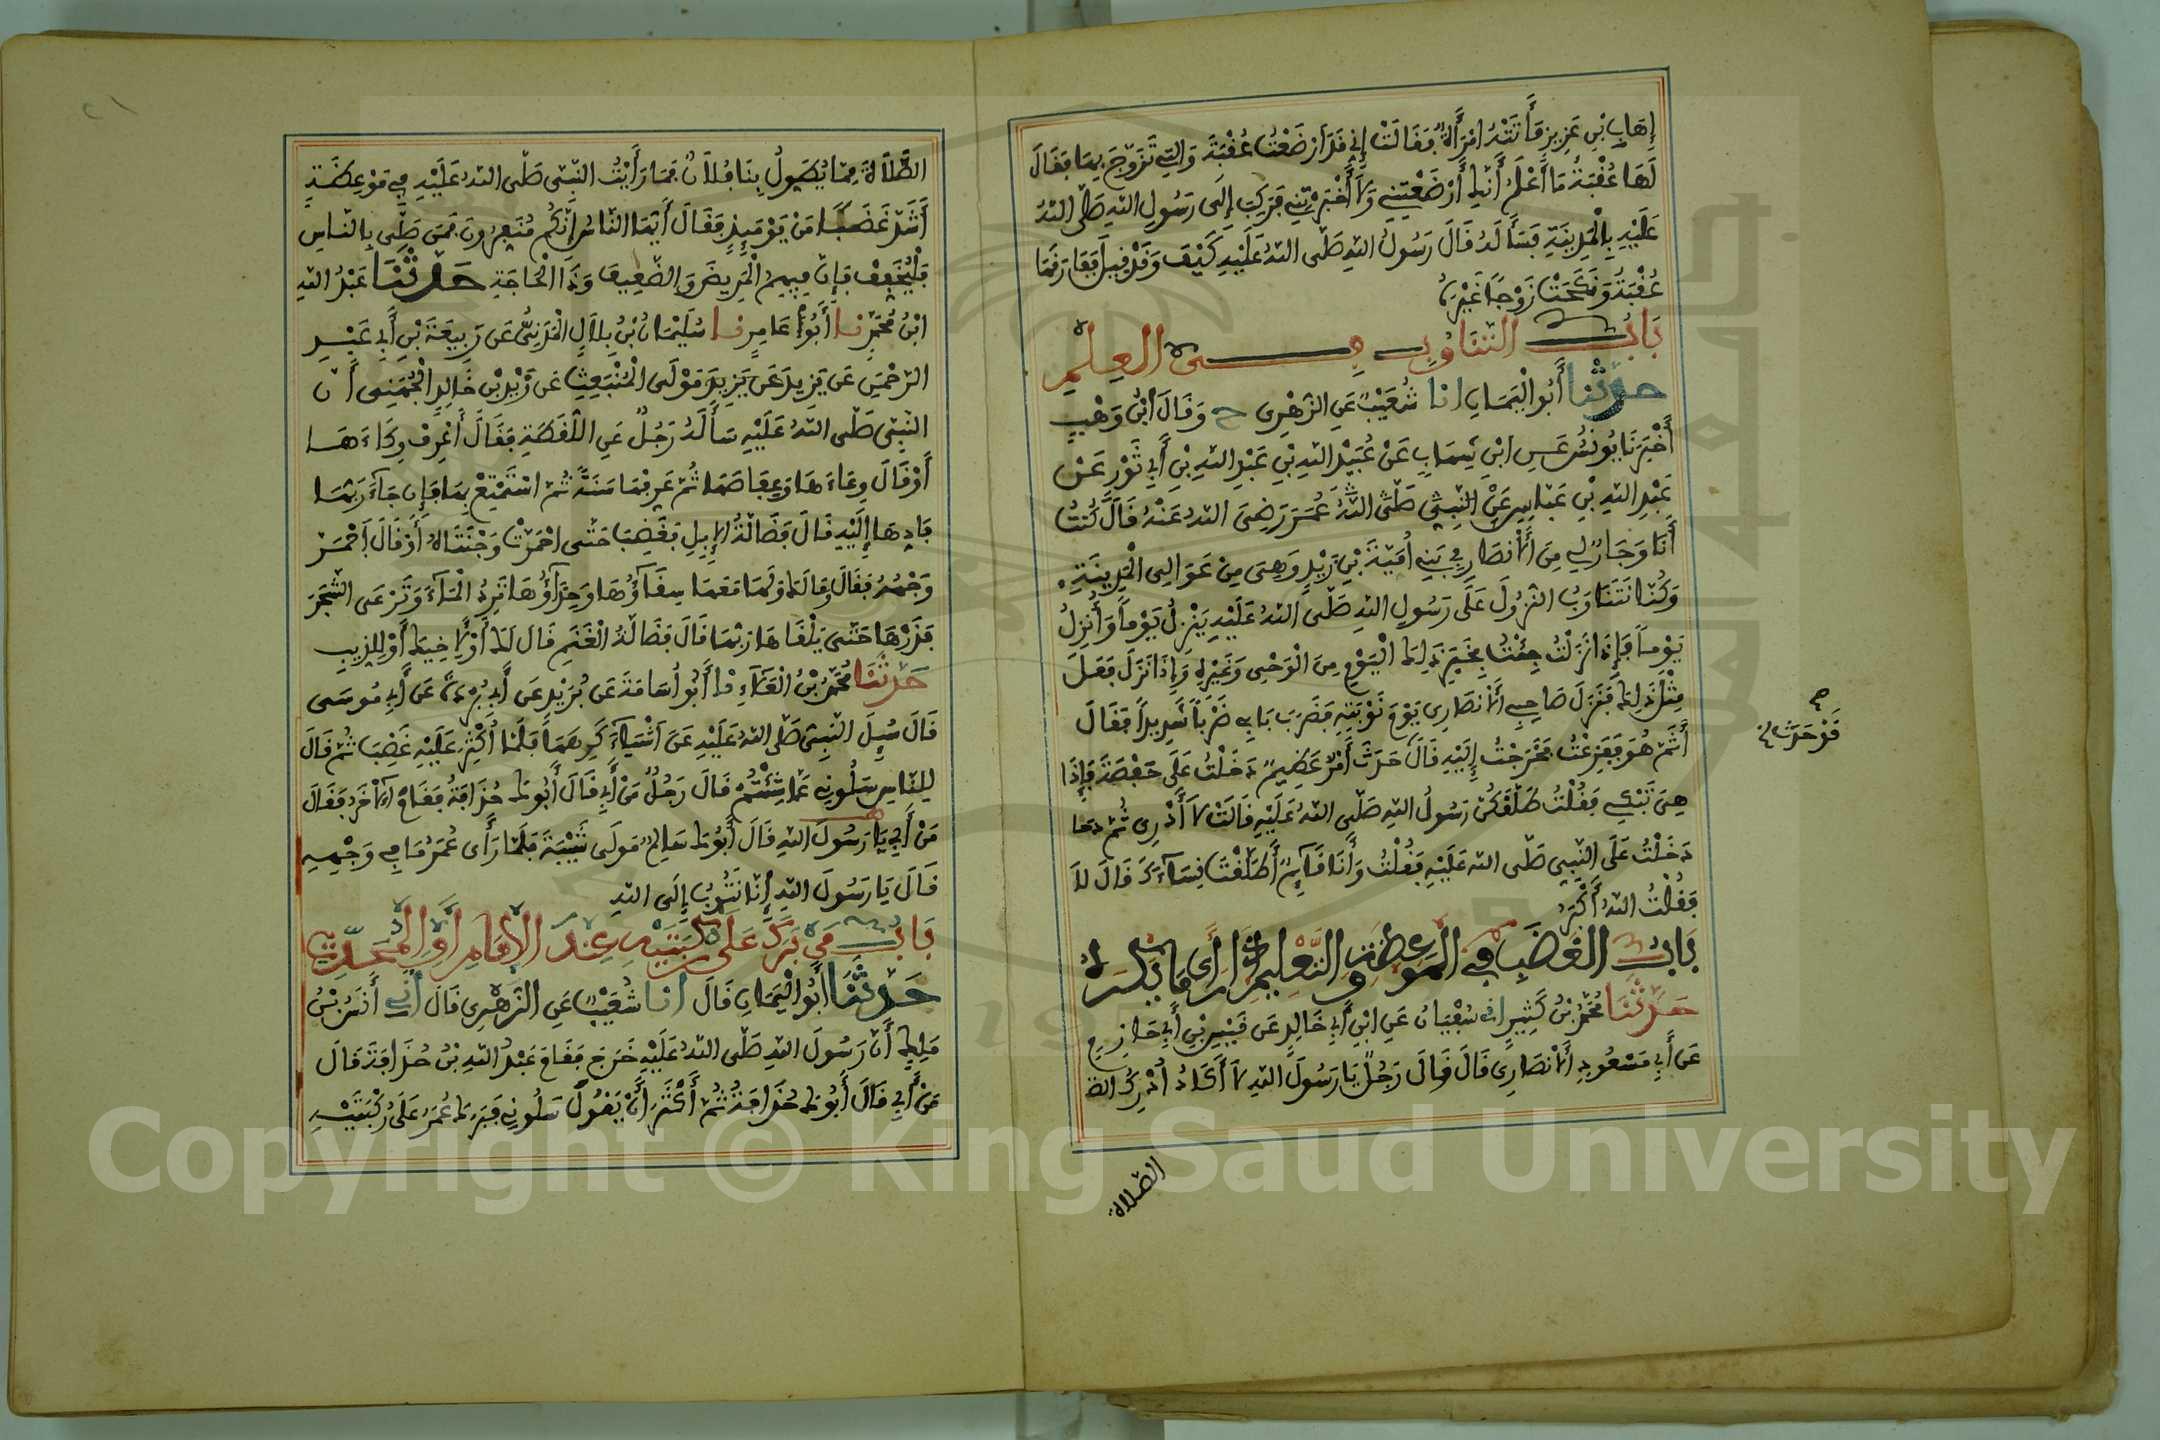 إِهَابِ بْنِ عَزِيزٍ فَأَتَتْهُ امْرَأَةٌ فَقَالَتْ إِنِّي قَدْ أَرْضَعْتُ عُقْبَةَ وَالَّتِي تَزَوَّجَ بِهَا فَقَالَ
لَهَا عُقْبَةُ مَا أَعْلَمُ أَنَّكِ أَرْضَعْتِنِي وَلَا أَخْبَرْتِنِي فَرَكِبَ إِلَى رَسُولِ اللهِ صَلَّى اللهُ
عَلَيْهِ بِالْمَدِينَةِ فَسَأَلَهُ فَقَالَ رَسُولُ اللهِ صَلَّى اللهُ عَلَيْهِ كَيْفَ وَقَدْ قِيلَ فَفَارَقَهَا
عُقْبَةُ وَنَكَحَتْ زَوْجًا غَيْرَهُ
بَابُ التَّنَاوُبِ فِي الْعِلْمِ
حَدَّثَنَا أَبُو الْيَمَانِ انا شُعَيْبٌ عَنِ الزُّهْرِي ح وَقَالَ ابْنُ وَهْبٍ
أَخْبَرَنَا يُونُسُ عَنِ ابْنِ شِهَابٍ عَنْ عُبَيْدِ اللهِ بْنِ عَبْدِ اللهِ بْنِ أَبِي ثَوْرٍ عَنْ
عَبْدِ اللهِ بْنِ عَبَّاسٍ عَنِ النَّبِيِّ صَلَّى اللهُ عُمَرَ رَضِيَ اللهُ عَنْهُ قَالَ كُنْتُ
أَنَا وَجَارٌ لِي مِنَ الْأَنْصَارِ فِي بَنِي أُمَيَّةَ بْنِ زَيْدٍ وَهِيَ مِنْ عَوَالِي الْمَدِينَةِ
وَكُنَّا نَتَنَاوَبُ النُّزُولَ عَلَى رَسُولِ اللهِ صَلَّى اللهُ عَلَيْهِ يَنْزِلُ يَوْمًا وَأَنْزِلُ
يَوْمًا فَإِذَا نَزَلْتُ جِئْتُ بِخَبَرِ ذَلِكَ الْيَوْمِ مِنَ الْوَحْيِ وَغَيْرِهِ وَإِذَا نَزَلَ فَعَلَ
مِثْلَ ذَلِكَ فَنَزَلَ صَاحِبِي الْأَنْصَارِي يَوْمَ نَوْبَتِهِ فَضَرَبَ بَابِي ضَرْبًا شَدِيدًا فَقَالَ
أَثَمَّ هُوَ فَفَزِعْتُ فَخَرَجْتُ إِلَيْهِ قَالَ حَدَثَ أَمْرٌ عَظِيمٌ دَخَلْتُ عَلَى حَفْصَةَ فَإِذَا
قَدْ حَدَثَ
هِيَ تَبْكِي فَقُلْتُ طَلَّقَكُنَّ رَسُولُ اللهِ صَلَّى اللهُ عَلَيْهِ قَالَتْ لَا أَدْرِي ثُمَّ
دَخَلْتُ عَلَى النَّبِيِّ صَلَّى اللهُ عَلَيْهِ فَقُلْتُ وَأَنَا قَائِمٌ أَطَلَّقْتَ نِسَاءَكَ قَالَ لَا
فَقُلْتُ اللهُ أَكْبَرُ
بَابُ الْغَضَبِ فِي الْمَوْعِظَةِ وَالتَّعْلِيمِ إِذَا رَأَى مَا يَكْرَهُ
حَدَّثَنَا مُحَمَّدُ بْنُ كَثِيرٍ اني سُفْيَانُ عَنِ ابْنِ أَبِي خَالِدٍ عَنْ قَيْسِ بْنِ أَبِي حَازِمٍ
عَنْ أَبِي مَسْعُودٍ الْأَنْصَارِي قَالَ قَالَ رَجُلٌ يَا رَسُولَ اللهِ لَا أَكَادُ أُدْرِكُ الصَّلَاةَ
الصَّلَاةَ
الصَّلَاةَ مِمَّا يُطَوِّلُ بِنَا فُلَانٌ فَمَا رَأَيْتُ النَّبِيَّ صَلَّى اللهُ عَلَيْهِ فِي مَوْعِظَةٍ
أَشَدَّ غَضَبًا مِنْ يَوْمَئِذٍ فَقَالَ أَيُّهَا النَّاسُ إِنَّكُمْ مُنَفِّرُونَ فَمَنْ صَلَّى بِالنَّاسِ
فَلْيُخَفِّفْ فَإِنَّ فِيهِمُ الْمَرِيضَ وَالضَّعِيفَ وَذَا الْحَاجَةِ حَدَّثَنَا عَبْدُ اللهِ
ابْنُ مُحَمَّدٍ نا أَبُو عَامِرٍ نا سُلَيْمَانُ بْنُ بِلَالٍ الْمَدَنِيُّ عَنْ رَبِيعَةَ بْنِ أَبِي عَبْدِ
الرَّحْمَنِ عَنْ يَزِيدَ عَنْ يَزِيدَ مَوْلَى الْمُنْبَعِثِ عَنْ زَيْدِ بْنِ خَالِدٍ الْجُهَنِي أَنَّ
النَّبِيَّ صَلَّى اللهُ عَلَيْهِ سَأَلَهُ رَجُلٌ عَنِ اللُّقَطَةِ فَقَالَ اعْرِفْ وِكَاءَهَا
أَوْ قَالَ وِعَاءَهَا وَعِفَاصَهَا ثُمَّ عَرِّفْهَا سَنَةً ثُمَّ اسْتَمْتِعْ بِهَا فَإِنْ جَاءَ رَبُّهَا
فَأَدِّهَا إِلَيْهِ قَالَ فَضَالَّةُ الْإِبِلِ فَغَضِبَ حَتَّى احْمَرَّتْ وَجْنَتَاهُ أَوْ قَالَ احْمَرَّ
وَجْهُهُ فَقَالَ وَمَا لَكَ وَلَهَا مَعَهَا سِقَاؤُهَا وَحِذَاؤُهَا تَرِدُ الْمَاءَ وَتَرْعَى الشَّجَرَ
فَذَرْهَا حَتَّى يَلْقَاهَا رَبُّهَا قَالَ فَضَالَّةُ الْغَنَمِ قَالَ لَكَ أَوْ لِأَخِيكَ أَوْ لِلذِّيبِ
حَدَّثَنَا مُحَمَّدُ بْنُ الْعَلَاءِ نا أَبُو أُسَامَةَ عَنْ بُرَيْدٍ عَنْ أَبِي بُرْدَةَ عَنْ أَبِي مُوسَى
قَالَ سُئِلَ النَّبِيُّ صَلَّى اللهُ عَلَيْهِ عَنْ أَشْيَاءَ كَرِهَهَا فَلَمَّا أُكْثِرَ عَلَيْهِ غَضِبَ ثُمَّ قَالَ
لِلنَّاسِ سَلُونِي عَمَّا شِئْتُمْ قَالَ رَجُلٌ مَنْ أَبِي قَالَ أَبُوكَ حُذَافَةُ فَقَامَ آخَرُ فَقَالَ
مَنْ أَبِي يَا رَسُولَ اللهِ قَالَ أَبُوكَ سَالِمٌ مَوْلَى شَيْبَةَ فَلَمَّا رَأَى عُمَرُ مَا فِي وَجْهِهِ
قَالَ يَا رَسُولَ اللهِ إِنَّا نَتُوبُ إِلَى اللهِ
بَابُ مَنْ بَرَكَ عَلَى رُكْبَتَيْهِ عِنْدَ الْإِمَامِ أَوِ الْمُحَدِّثِ
حَدَّثَنَا أَبُو الْيَمَانِ قَالَ انا شُعَيْبٌ عَنِ الزُّهْرِي قَالَ اني أَنَسُ بْنُ
مَلِكٍ أَنَّ رَسُولَ اللهِ صَلَّى اللهُ عَلَيْهِ خَرَجَ فَقَامَ عَبْدُ اللهِ بْنُ حُذَافَةَ قَالَ
مَنْ أَبِي قَالَ أَبُوكَ حُذَافَةُ ثُمَّ أَكْثَرَ أَنْ يَقُولَ سَلُونِي فَبَرَكَ عُمَرُ عَلَى رُكْبَتَيْهِ
Copyright © King Saud University